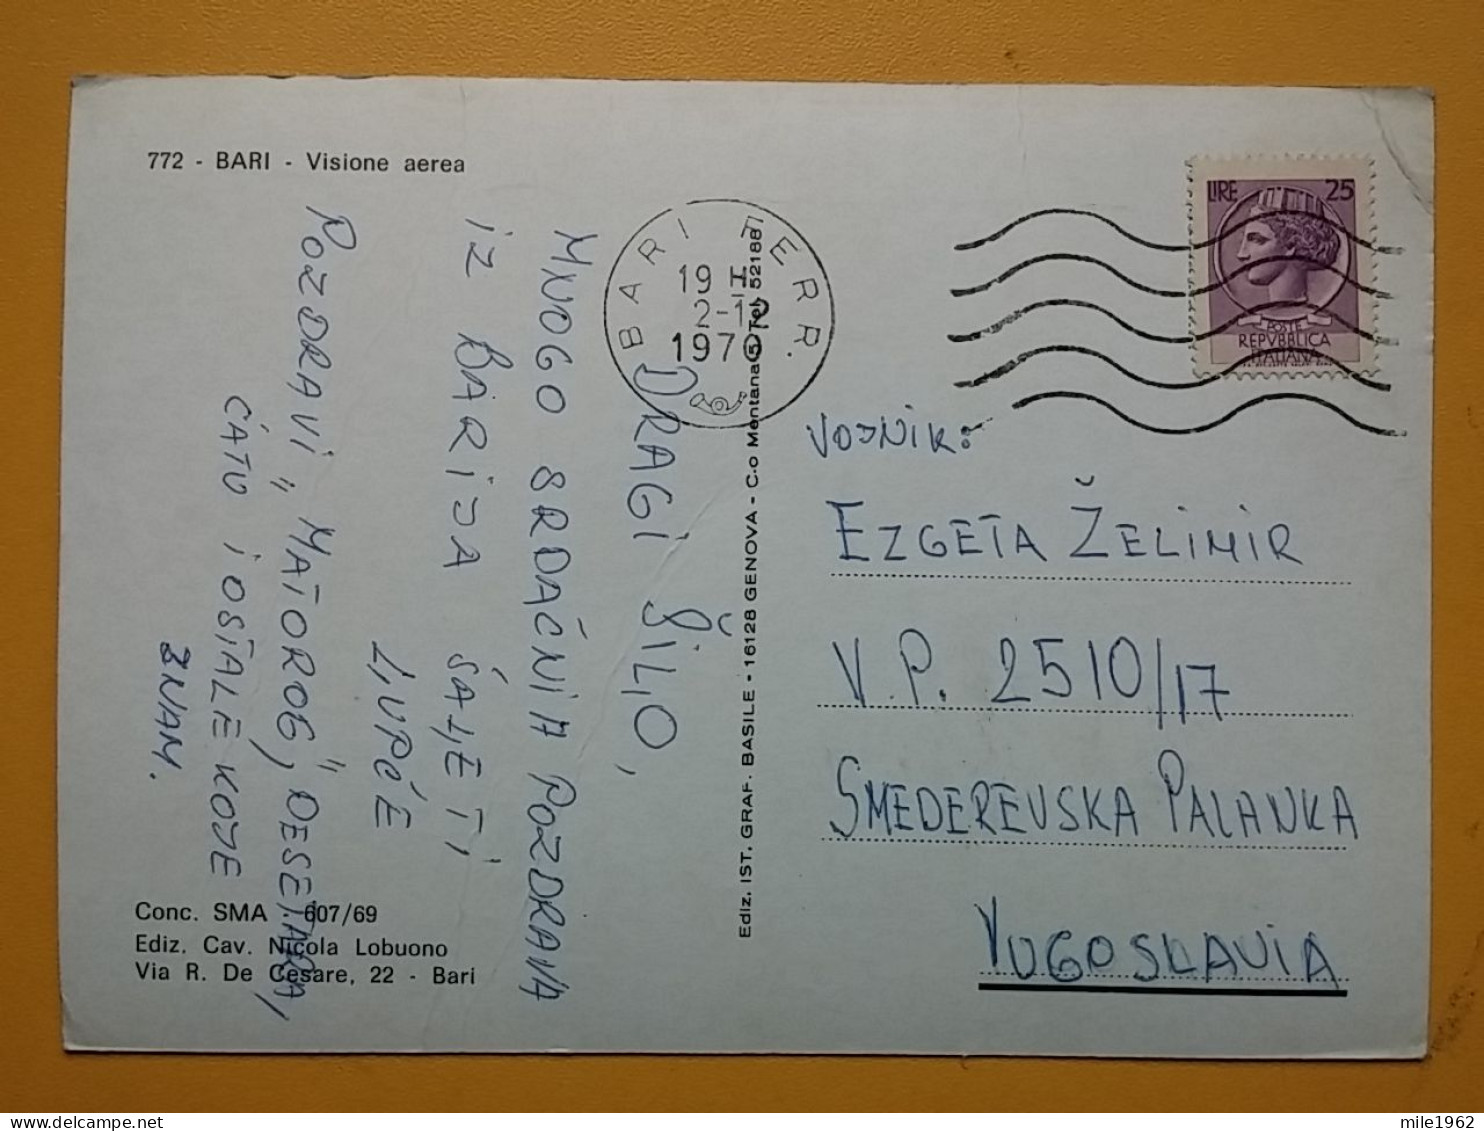 772 - BARI - Visione aerea
DRAGI ŠILJO,
MNOGO SRDAČNIH POZDRAVA
IZ BARIJA ŠALJE TI
LJUPČE
POZDRAVI „MATOROG", DESETARA,
ĆATU I OSTALE KOJE
ZNAM.
Conc. SMA 607/69
Ediz. Cav. Nicola Lobuono
Via R. De Cesare, 22 - Bari
Ediz. IST. GRAF. BASILE - 16128 GENOVA - C.o Mentana 5 Tel. 52188
BARI FERR.
19 I
1970
LIRE 25
POSTE
REPVBBLICA
ITALIANA
VODNIK:
EZGETA ŽELIMIR
V.P. 2510/17
SMEDEREVSKA PALANKA
YUGOSLAVIA
mile1962